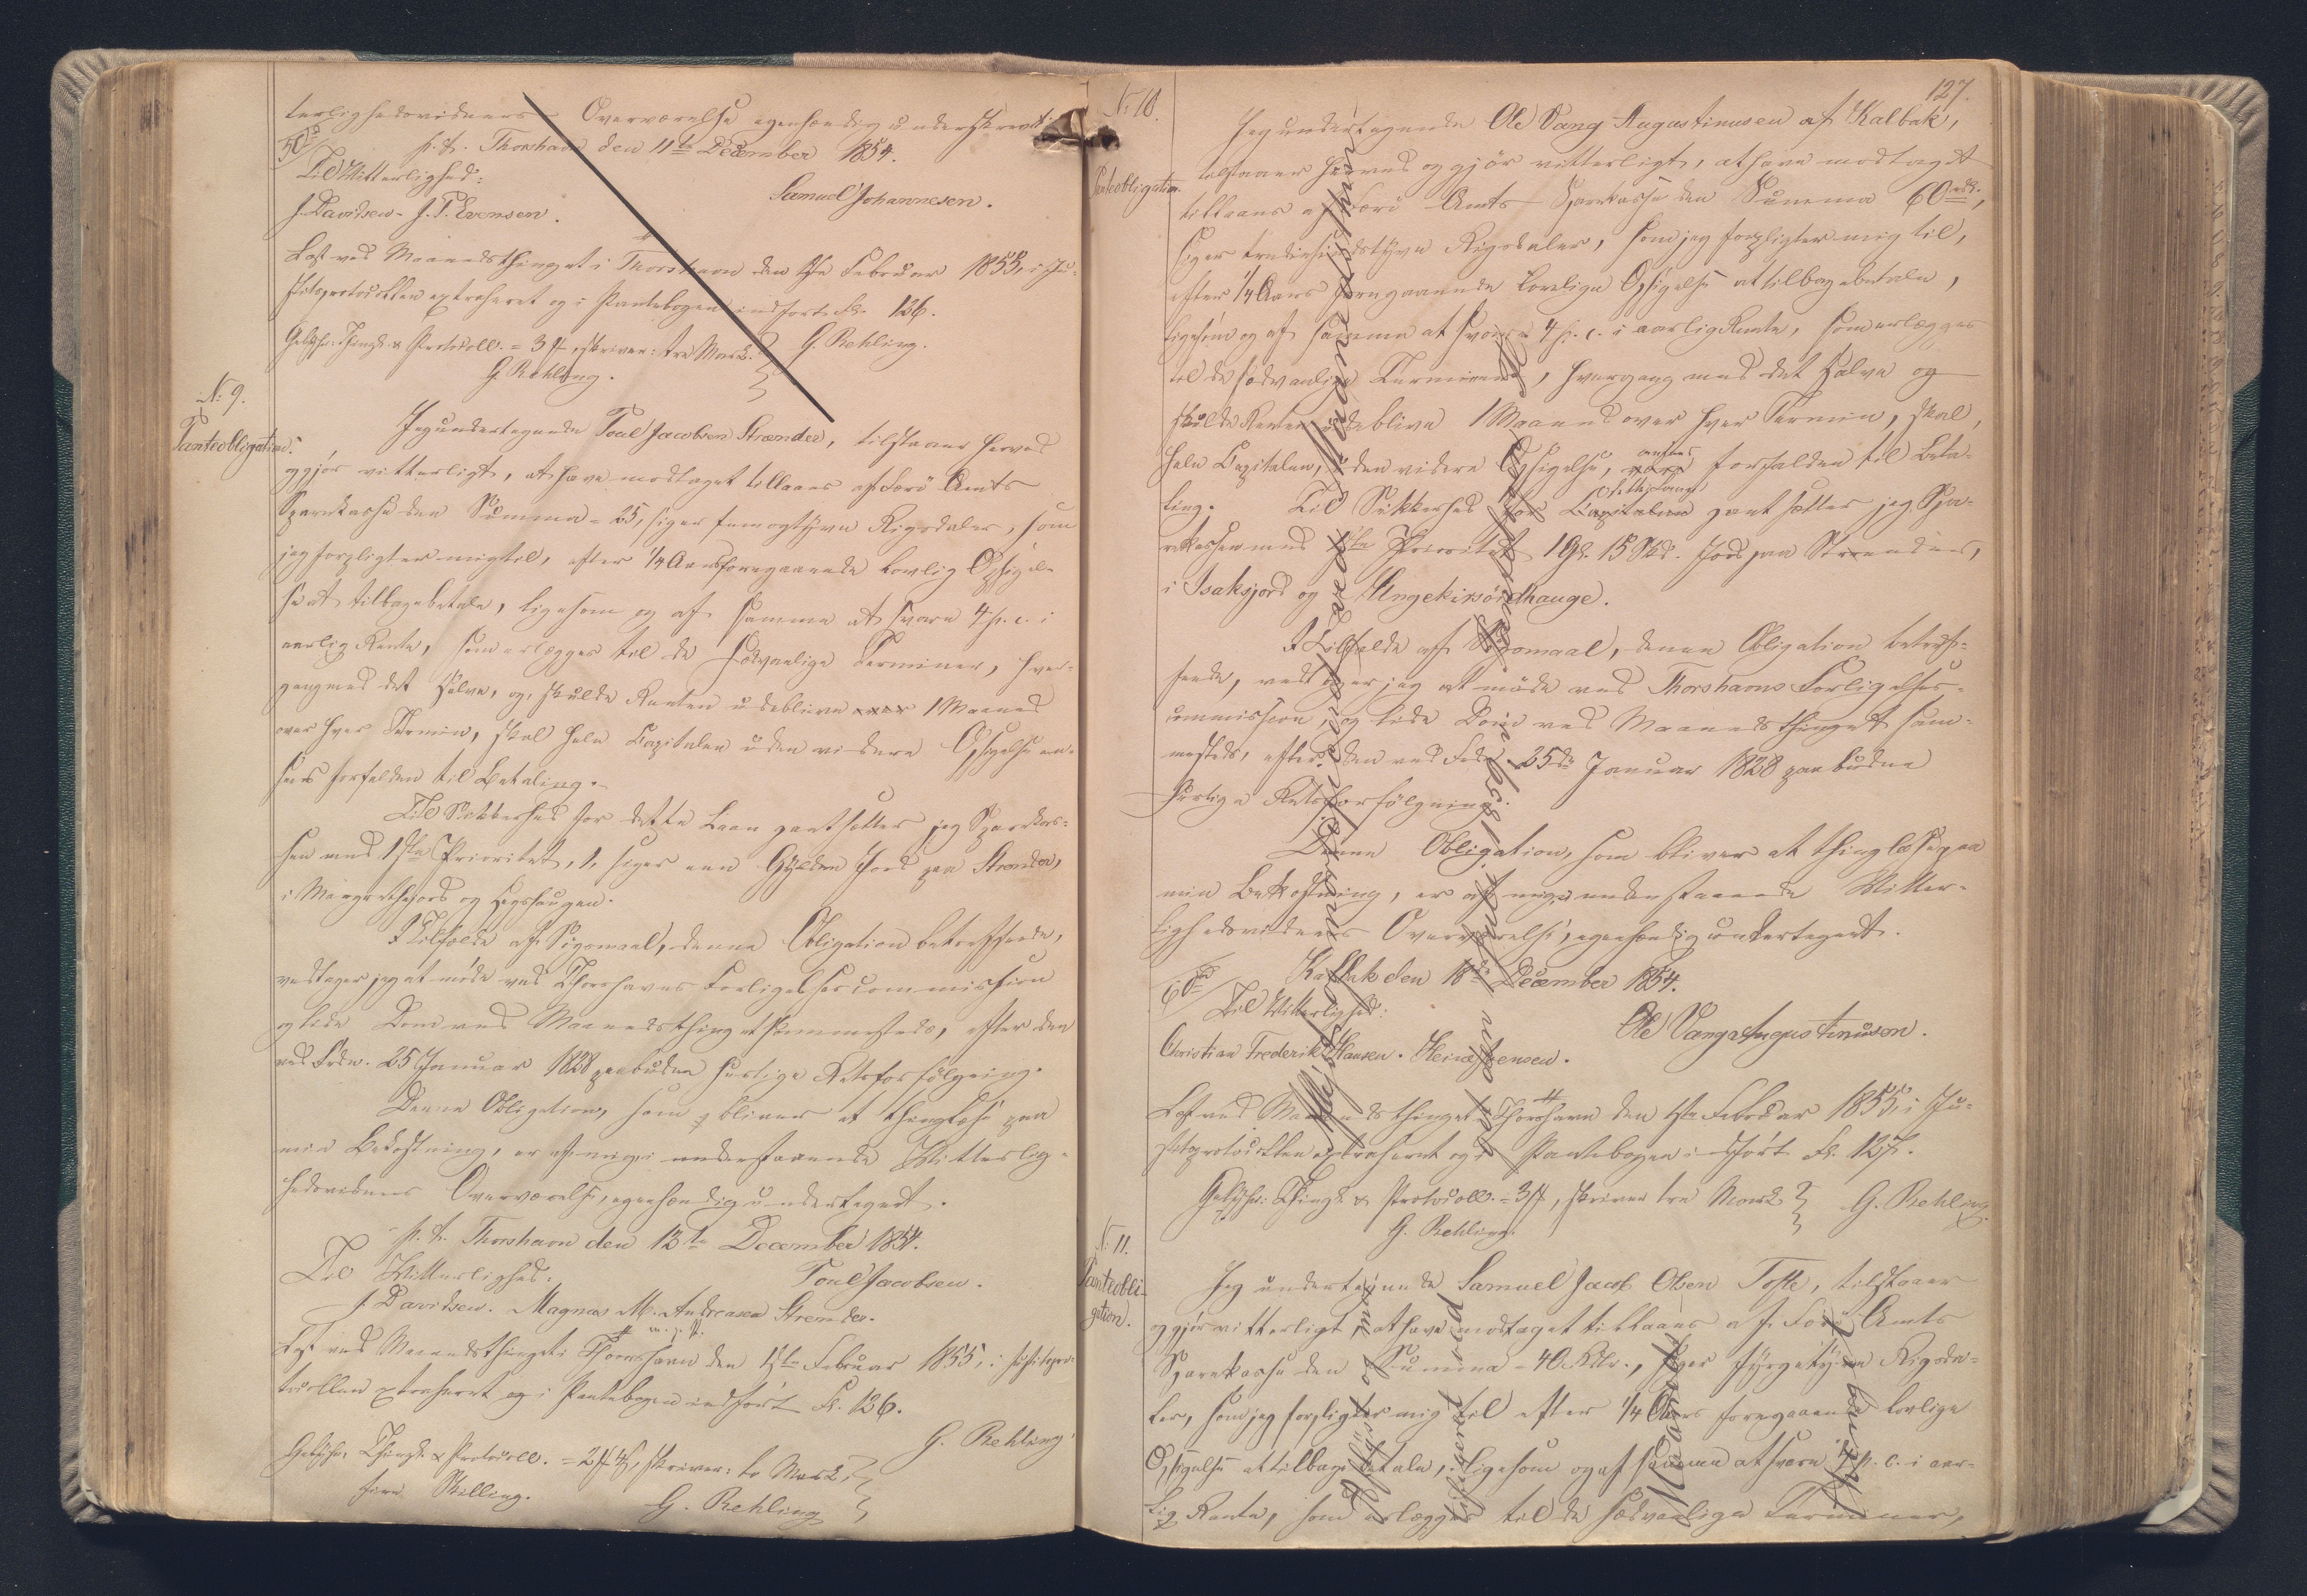 terlighedsvidners Overværelse egenhændig underskrevet.
50 rd
p. t. Thorshavn den 11te December 1854.
Til Vitterlighed:
Samuel Johannesen.
J. Davidsen. J. P. Evensen.
Læst ved Maanedsthinget i Thorshavn den 1ste Februar 1855, i Ju-
stitsprotocollen extraheret og i Pantebogen indført Fl. 126.
Gebyhr: Thingl. & Protocoll. = 3 #, skriver: tre Mark.
G. Rehling.
G. Rehling.
N: 9.
Panteobligation.
Jeg undertegnede Poul Jacobsen Strender, tilstaaer herved
og gjør vitterligt, at have modtaget tillaans af Færø Amts
Sparekasse den Summa = 25, siger fem og tyve Rigsdaler, som
jeg forpligter mig til, efter 1/4 Aars foregaaende lovlig Opsigel-
se at tilbagebetale, ligesom og af samme at svare 4 p. c. i
aarlig Rente, som erlægges til de sædvanlige Terminer, hver-
gang med det halve, og, skulde Renten udeblive 1 Maaned
over hver Termin, skal hele Capitalen uden videre Opsigelse an-
sees forfalden til Betaling.
Til Sikkerhed for dette Laan pantsætter jeg Sparekas-
sen med 1ste Prioritet, 1, siger een Gylden Jord paa Strender,
i Margrethejord og Hegshaugen.
I Tilfælde af Søgsmaal, denne Obligation betreffende,
vedtager jeg at møde ved Thorshavns Forligelsescommission
og lide Dom ved Maanedsthinget sammesteds, efter den
ved Frdn. 25 Januar 1828 paabudne hurtige Retsforfølgning.
Denne Obligation, som bliver at thinglæse paa
min Bekostning, er af mig i undenstaaende Vitterlig-
hedsvidners Overværelse, egenhændig undertegnet.
p. t. Thorshavn den 13te December 1854.
Til Vitterlighed:
Poul Jacobsen.
J. Davidsen. Magnus M. Andreasen Strender.
m. f. P.
Læst ved Maanedsthinget i Thorshavn den 1ste Februar 1855, i Justitspro-
tocollen extraheret og i Pantebogen indført Fl. 126.
G. Rehling
Gebyhr: Thingl. & Protocoll. = 2 # 4 ß, skriver: to Mark
fire Skilling.
G. Rehling
127.
N: 10.
Panteobligation.
Jeg undertegnede Ole Vang Augustinusen af Kalbak,
tilstaaer herved og gjør vitterligt, at have modtaget
tillaans af Færø Amts Sparekasse den Summa 60 rd.,
siger tredsindstyve Rigsdaler, som jeg forpligter mig til,
efter 1/4 Aars foregaaende lovlige Opsigelse at tilbagebetale,
ligesom og af samme at svare 4 p. c. i aarlig Rente, som erlægges
til de sædvanlige Terminer, hvergang med det halve og
skulde Renten udeblive 1 Maaned over hver Termin, skal
hele Capitalen, uden videre Opsigelse, ansees forfalden til Beta-
ling. Til Sikkerhed for dette Laan pantsætter jeg Spa-
rekassen med 1ste Prioritet 1 Gl. 15 Skd. Jord paa Strender,
i Isaksjord og Ungekirsørdhauge.
I Tilfælde af Søgsmaal, denne Obligation betref-
fende, vedtager jeg at møde ved Thorshavns Forligelses-
commission, og lide Dom ved Maanedsthinget sam-
mesteds, efter den ved Frdn. 25de Januar 1828 paabudne
hurtige Retsforfølgning.
Denne Obligation, som bliver at thinglæse paa
min Bekostning, er af mig i undenstaaende Vitter-
lighedsvidners Overværelse, egenhændig undertegnet.
60 rd
Kalbak den 18de December 1854.
Til Vitterlighed:
Ole Vang Augustinusen.
Christian Frederik Hansen. Heine Jensen.
Læst ved Maanedsthinget i Thorshavn den 1ste Februar 1855, i Ju-
stitsprotocollen extraheret og i Pantebogen indført Fl. 127.
Gebyhr: Thingl. & Protocoll. = 3 #, skriver tre Mark
G. Rehling.
G. Rehling.
N: 11.
Panteobli-
gation.
Jeg undertegnede Samuel Jacob Olsen Tofte, tilstaaer
og gjør vitterligt, at have modtaget tillaans af Færø Amts
Sparekasse den Summa = 40 Rdlr., siger fyrgetyve Rigsda-
ler, som jeg forpligter mig til efter 1/4 Aars foregaaende lovlige
Opsigelse at tilbagebetale, ligesom og af samme at svare 4 p. c. i aar-
lig Rente, som erlægges til de sædvanlige Terminer,